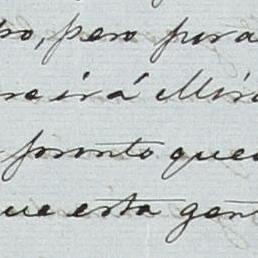 ro, pero para
re irá Mira
pronto qued
que esta gen